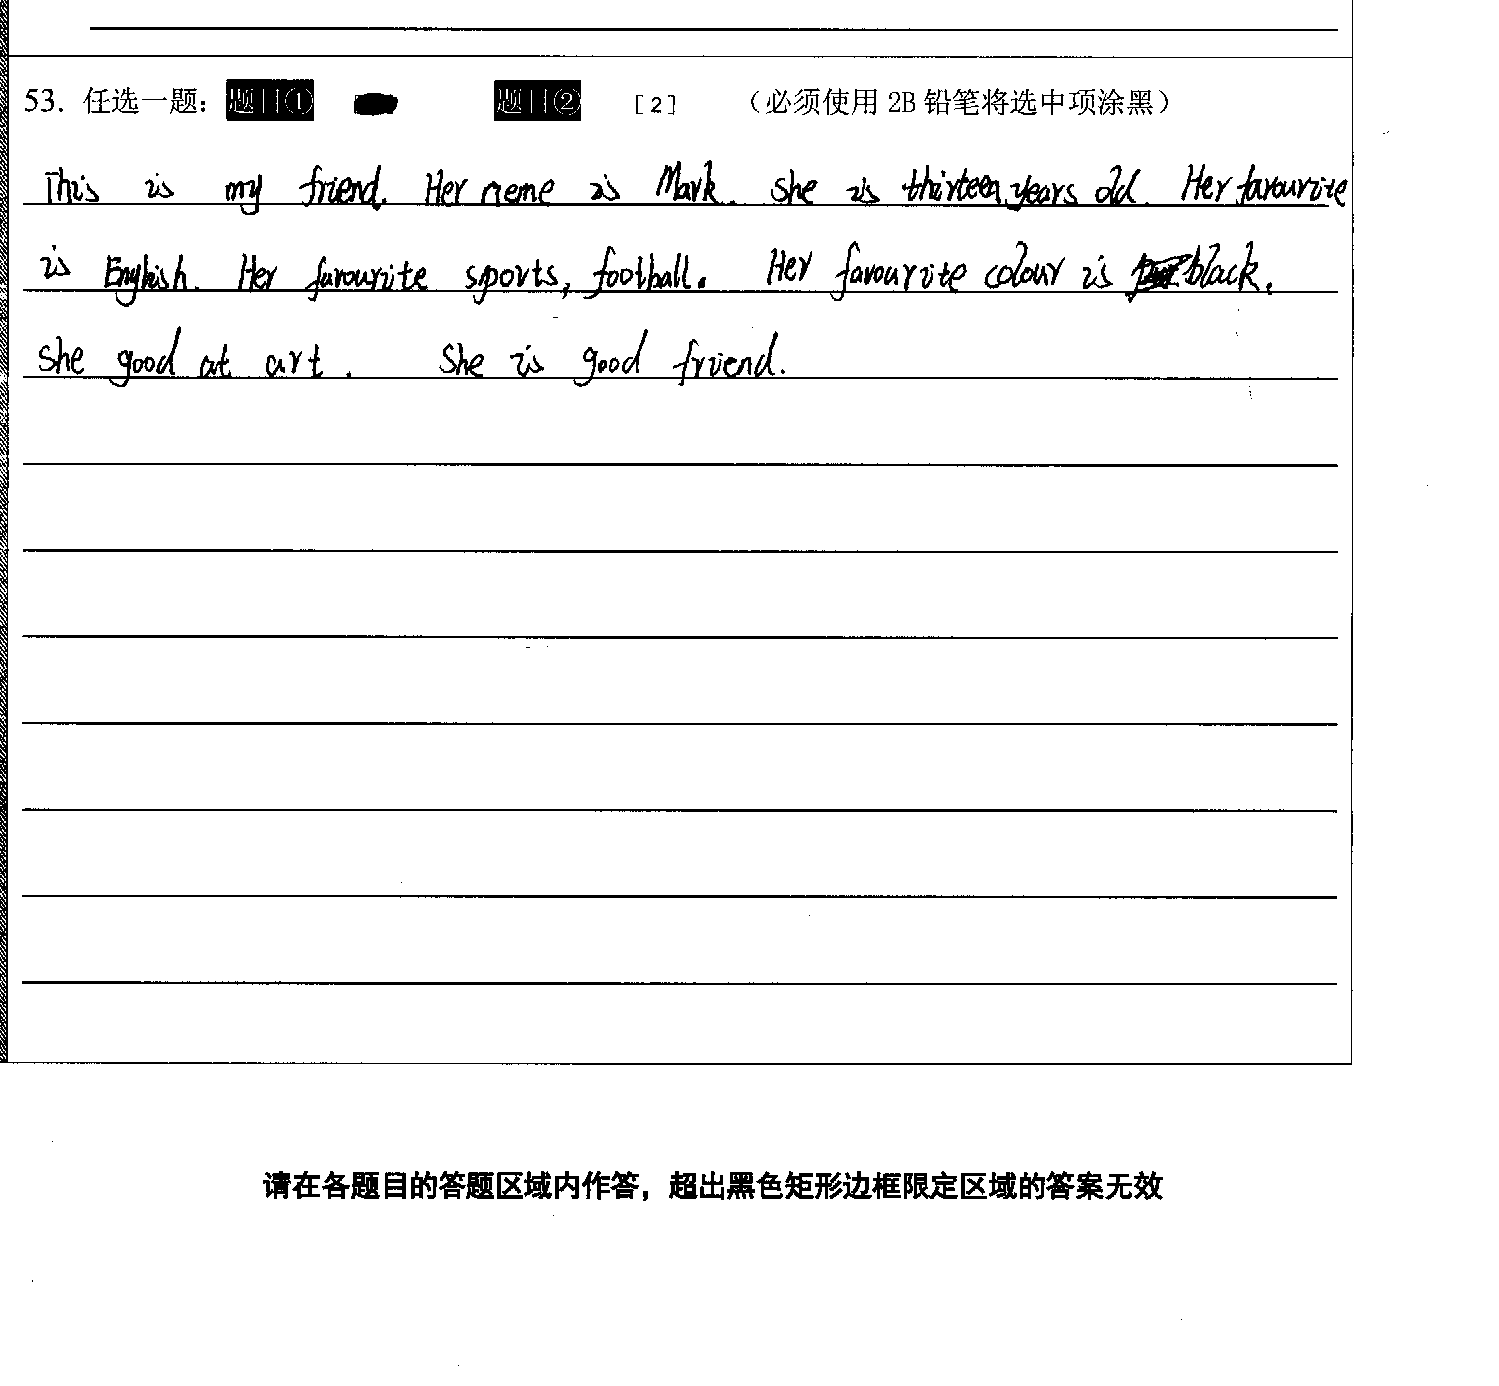 53. 任选一题： 题目① 题目② [2] （必须使用 2B 铅笔将选中项涂黑）
This is my friend. Her neme is Mark. She is thirteen years old. Her favourite
is English. Her favourite sports, football. Her favourite colour is black.
She good at art. She is good friend.
请在各题目的答题区域内作答，超出黑色矩形边框限定区域的答案无效